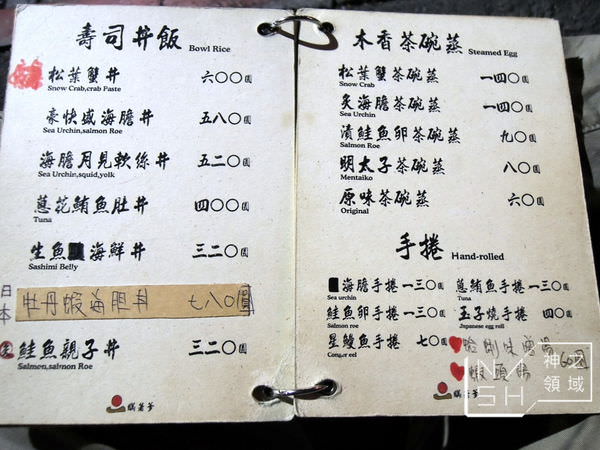 壽司丼飯 Bowl Rice
松葉蟹丼 六〇〇圓
Snow Crab,crab Paste
豪快感海膽丼 五八〇圓
Sea Urchin,salmon Roe
海膽月見軟絲丼 五二〇圓
Sea Urchin,squid,yolk
蔥花鮪魚肚丼 四〇〇圓
Tuna
生魚海鮮丼 三二〇圓
Sashimi Belly
日本 牡丹蝦海膽丼 七八〇圓
鮭魚親子丼 三二〇圓
Salmon,salmon Roe
木香茶碗蒸 Steamed Egg
松葉蟹茶碗蒸 一四〇圓
Snow Crab
炙海膽茶碗蒸 一四〇圓
Sea Urchin
漬鮭魚卵茶碗蒸 九〇圓
Salmon Roe
明太子茶碗蒸 八〇圓
Mentaiko
原味茶碗蒸 六〇圓
Original
手捲 Hand-rolled
海膽手捲 一三〇圓
Sea urchin
蔥鮪魚手捲 一三〇圓
Tuna
鮭魚卵手捲 一三〇圓
Salmon roe
玉子燒手捲 四〇圓
Japanese egg roll
星鰻魚手捲 七〇圓
Conger eel
蝦頭湯 60圓
神之領域
MSH